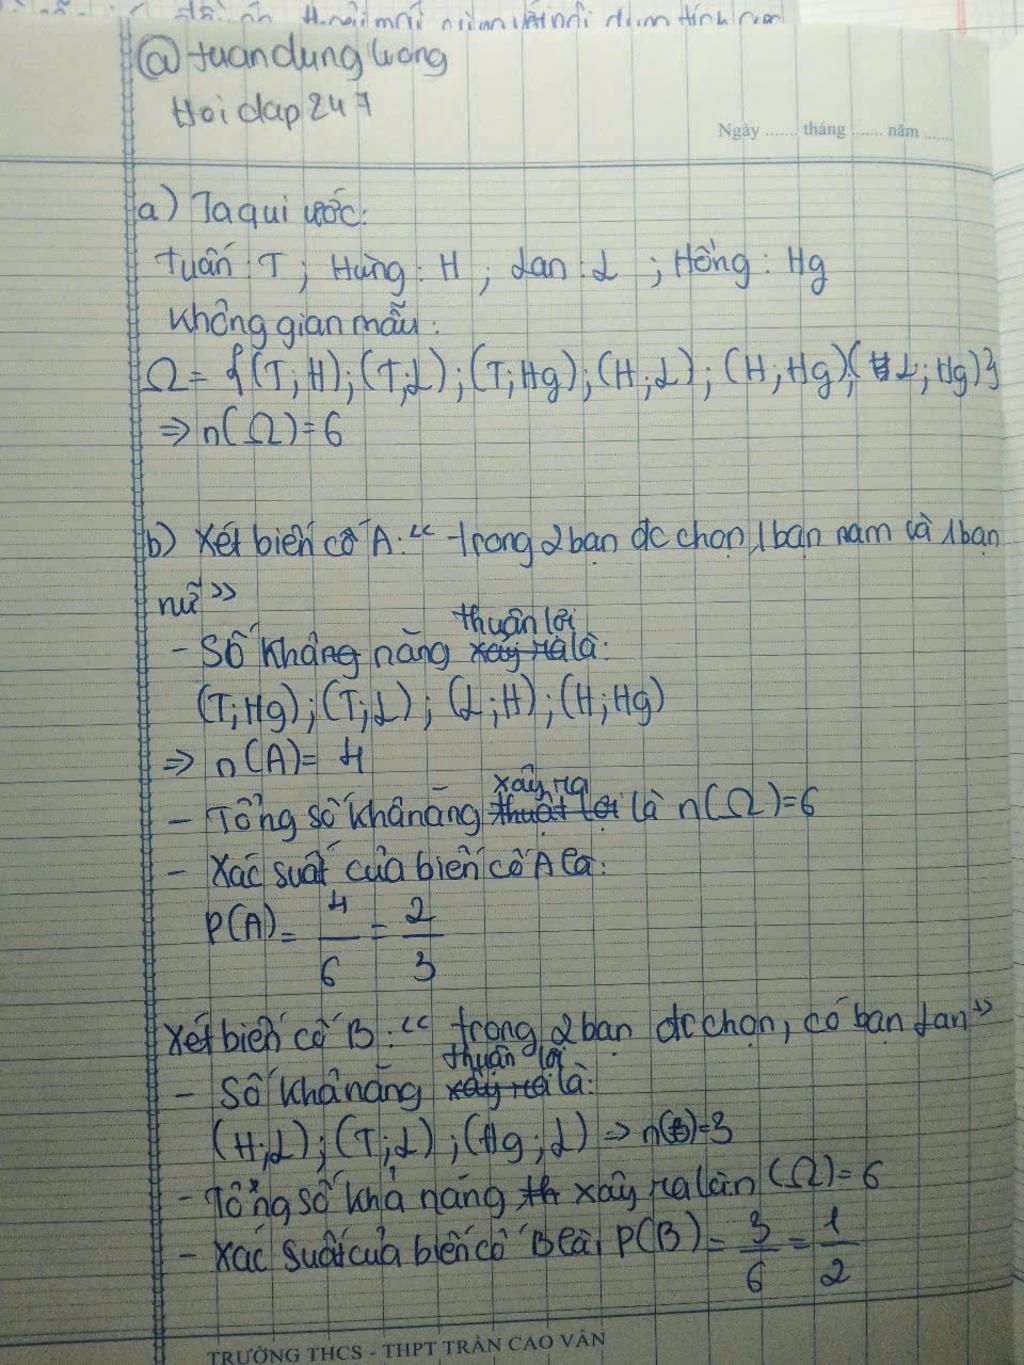 @tuandungluong
Hoidap247
Ngày ...... tháng ...... năm ......
a) Ta qui ước:
tuấn: T; Hùng: H; Lan: L; Hồng: Hg
Không gian mẫu:
Ω = {(T;H);(T;L);(T;Hg);(H;L);(H;Hg);(L;Hg)}
=> n(Ω)=6
b) Xét biến cố A: "trong 2 bạn đc chọn 1 bạn nam và 1 bạn
nữ"
thuận lợi
- Số khả năng xảy ra là:
(T;Hg);(T;L);(L;H);(H;Hg)
=> n(A)= 4
xảy ra
- Tổng số khả năng thuật lợi là n(Ω)=6
- Xác suất của biến cố A là:
P(A)= 4/6 = 2/3
Xét biến cố B: "trong 2 bạn đc chọn, có bạn Lan"
thuận lợi
- Số khả năng xảy ra là:
(H;L);(T;L);(Hg;L) => n(B)=3
- Tổng số khả năng th xảy ra là n(Ω)=6
- Xác suất của biến cố B là: P(B)= 3/6 = 1/2
TRƯỜNG THCS - THPT TRẦN CAO VÂN